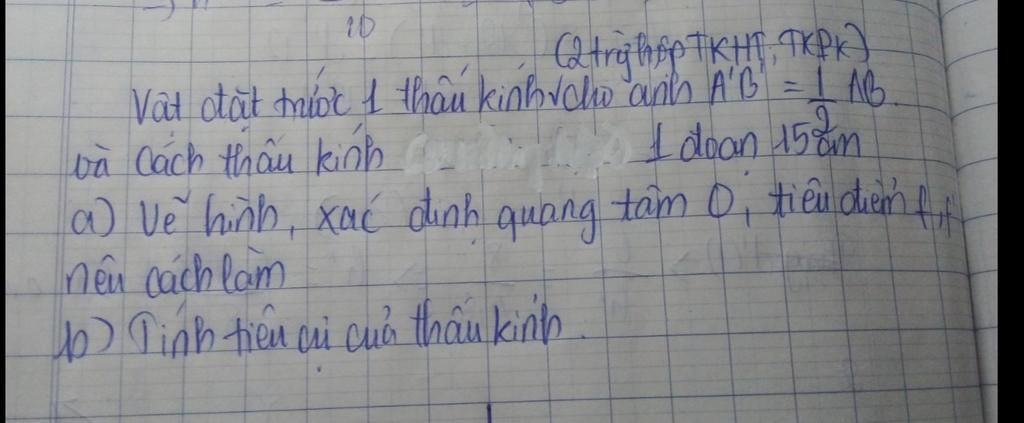 10
(2 trg hợp TKHT, TKPK)
Vật đặt trước 1 thấu kính cho ảnh A'B' = 1/2 AB.
và cách thấu kính 1 đoạn 15cm
a) Vẽ hình, xác định quang tâm O, tiêu điểm F, F'
nêu cách làm
b) Tính tiêu cự của thấu kính.